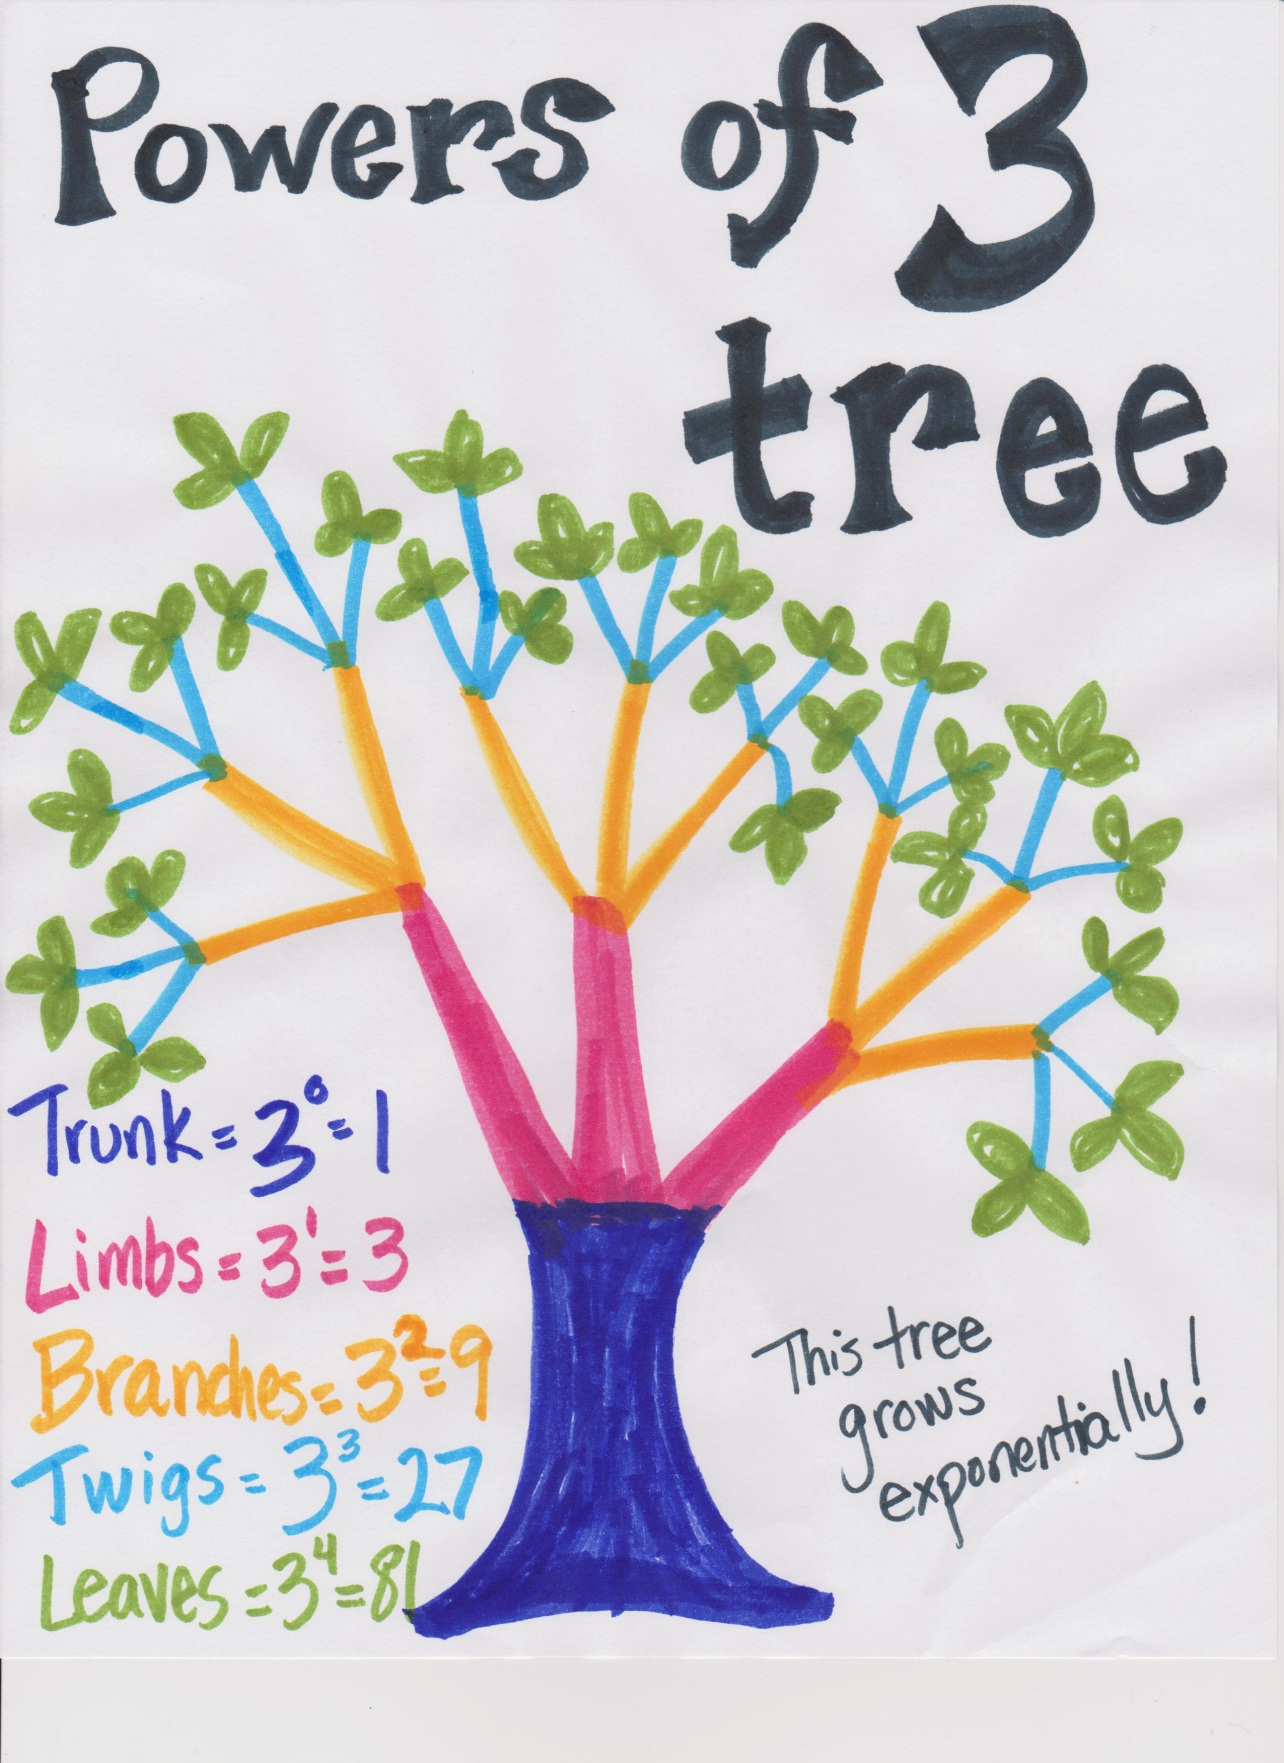 Powers of 3
tree
Trunk = 3⁰ = 1
Limbs = 3¹ = 3
Branches = 3² = 9
Twigs = 3³ = 27
Leaves = 3⁴ = 81
This tree
grows
exponentially!